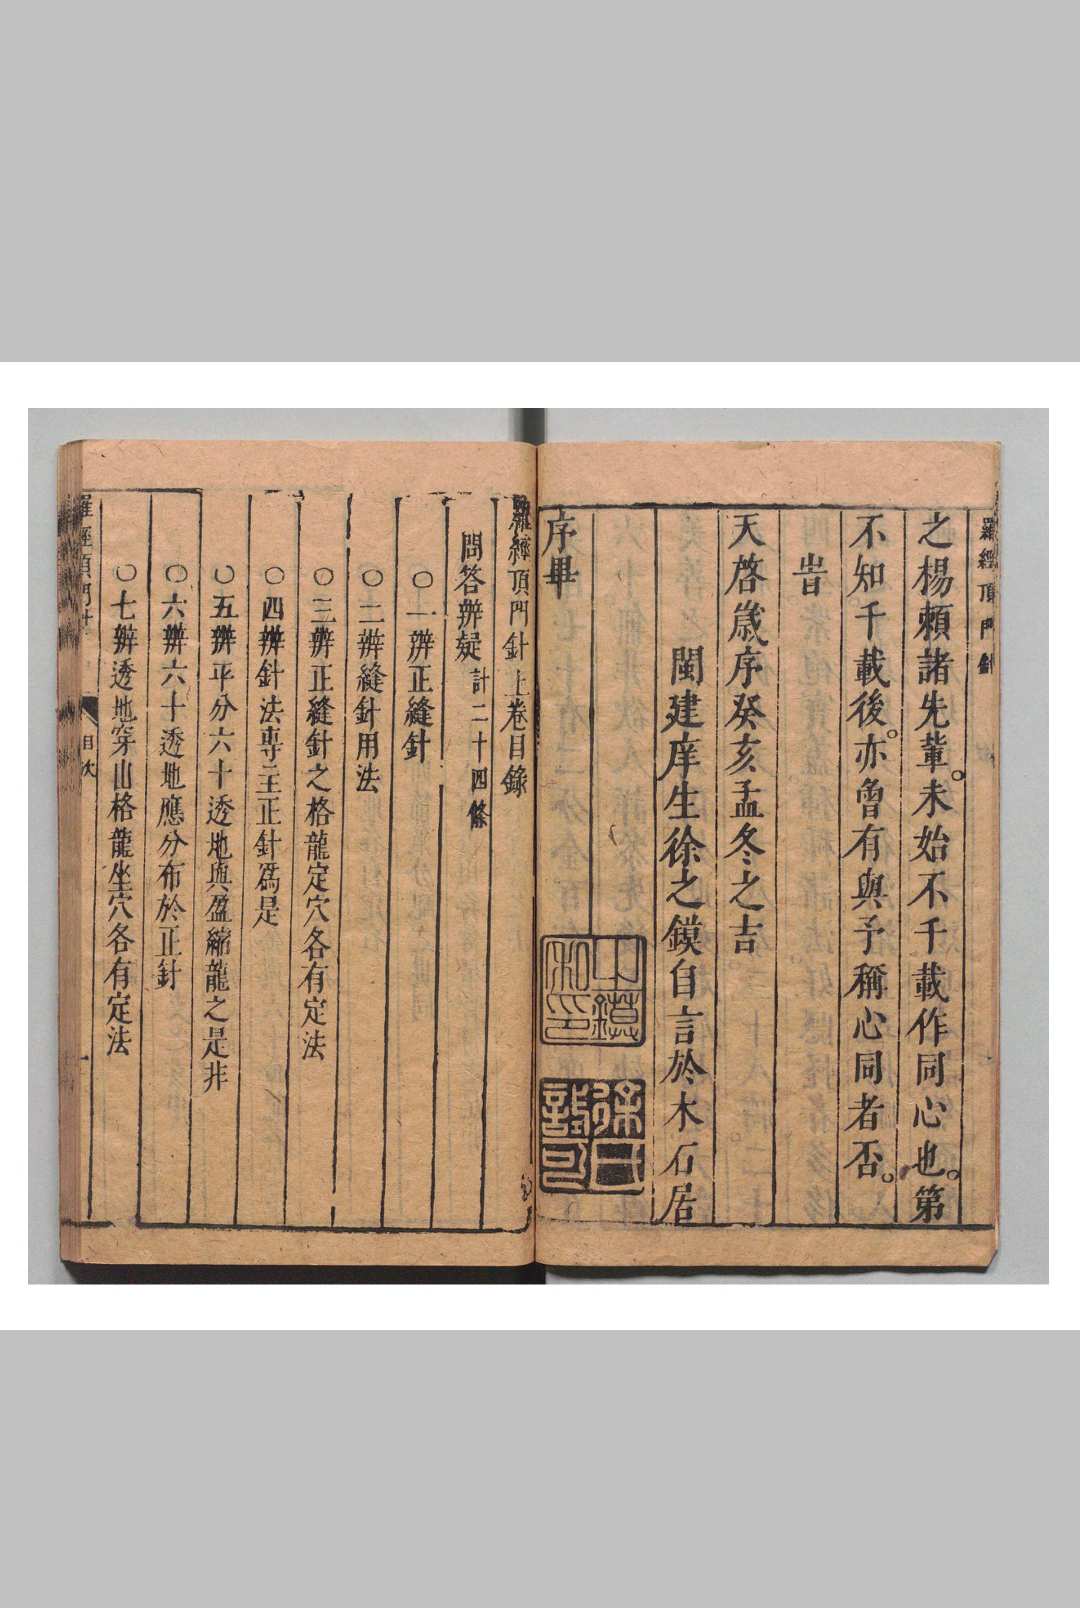 羅經頂門針
之楊賴諸先輩。未始不千載作同心也。第
不知千載後。亦曾有與予稱心同者否。
旹
天啓歲序癸亥孟冬之吉
閩建庠生徐之鏌自言於木石居
序畢
羅經頂門針上卷目錄
問答辨疑 計二十四條
○一辨正縫針
○二辨縫針用法
○三辨正縫針之格龍定穴各有定法
○四辨針法專主正針爲是
○五辨平分六十透地與盈縮龍之是非
○六辨六十透地應分布於正針
○七辨透地穿山格龍坐穴各有定法
羅經頂門針 目次 一